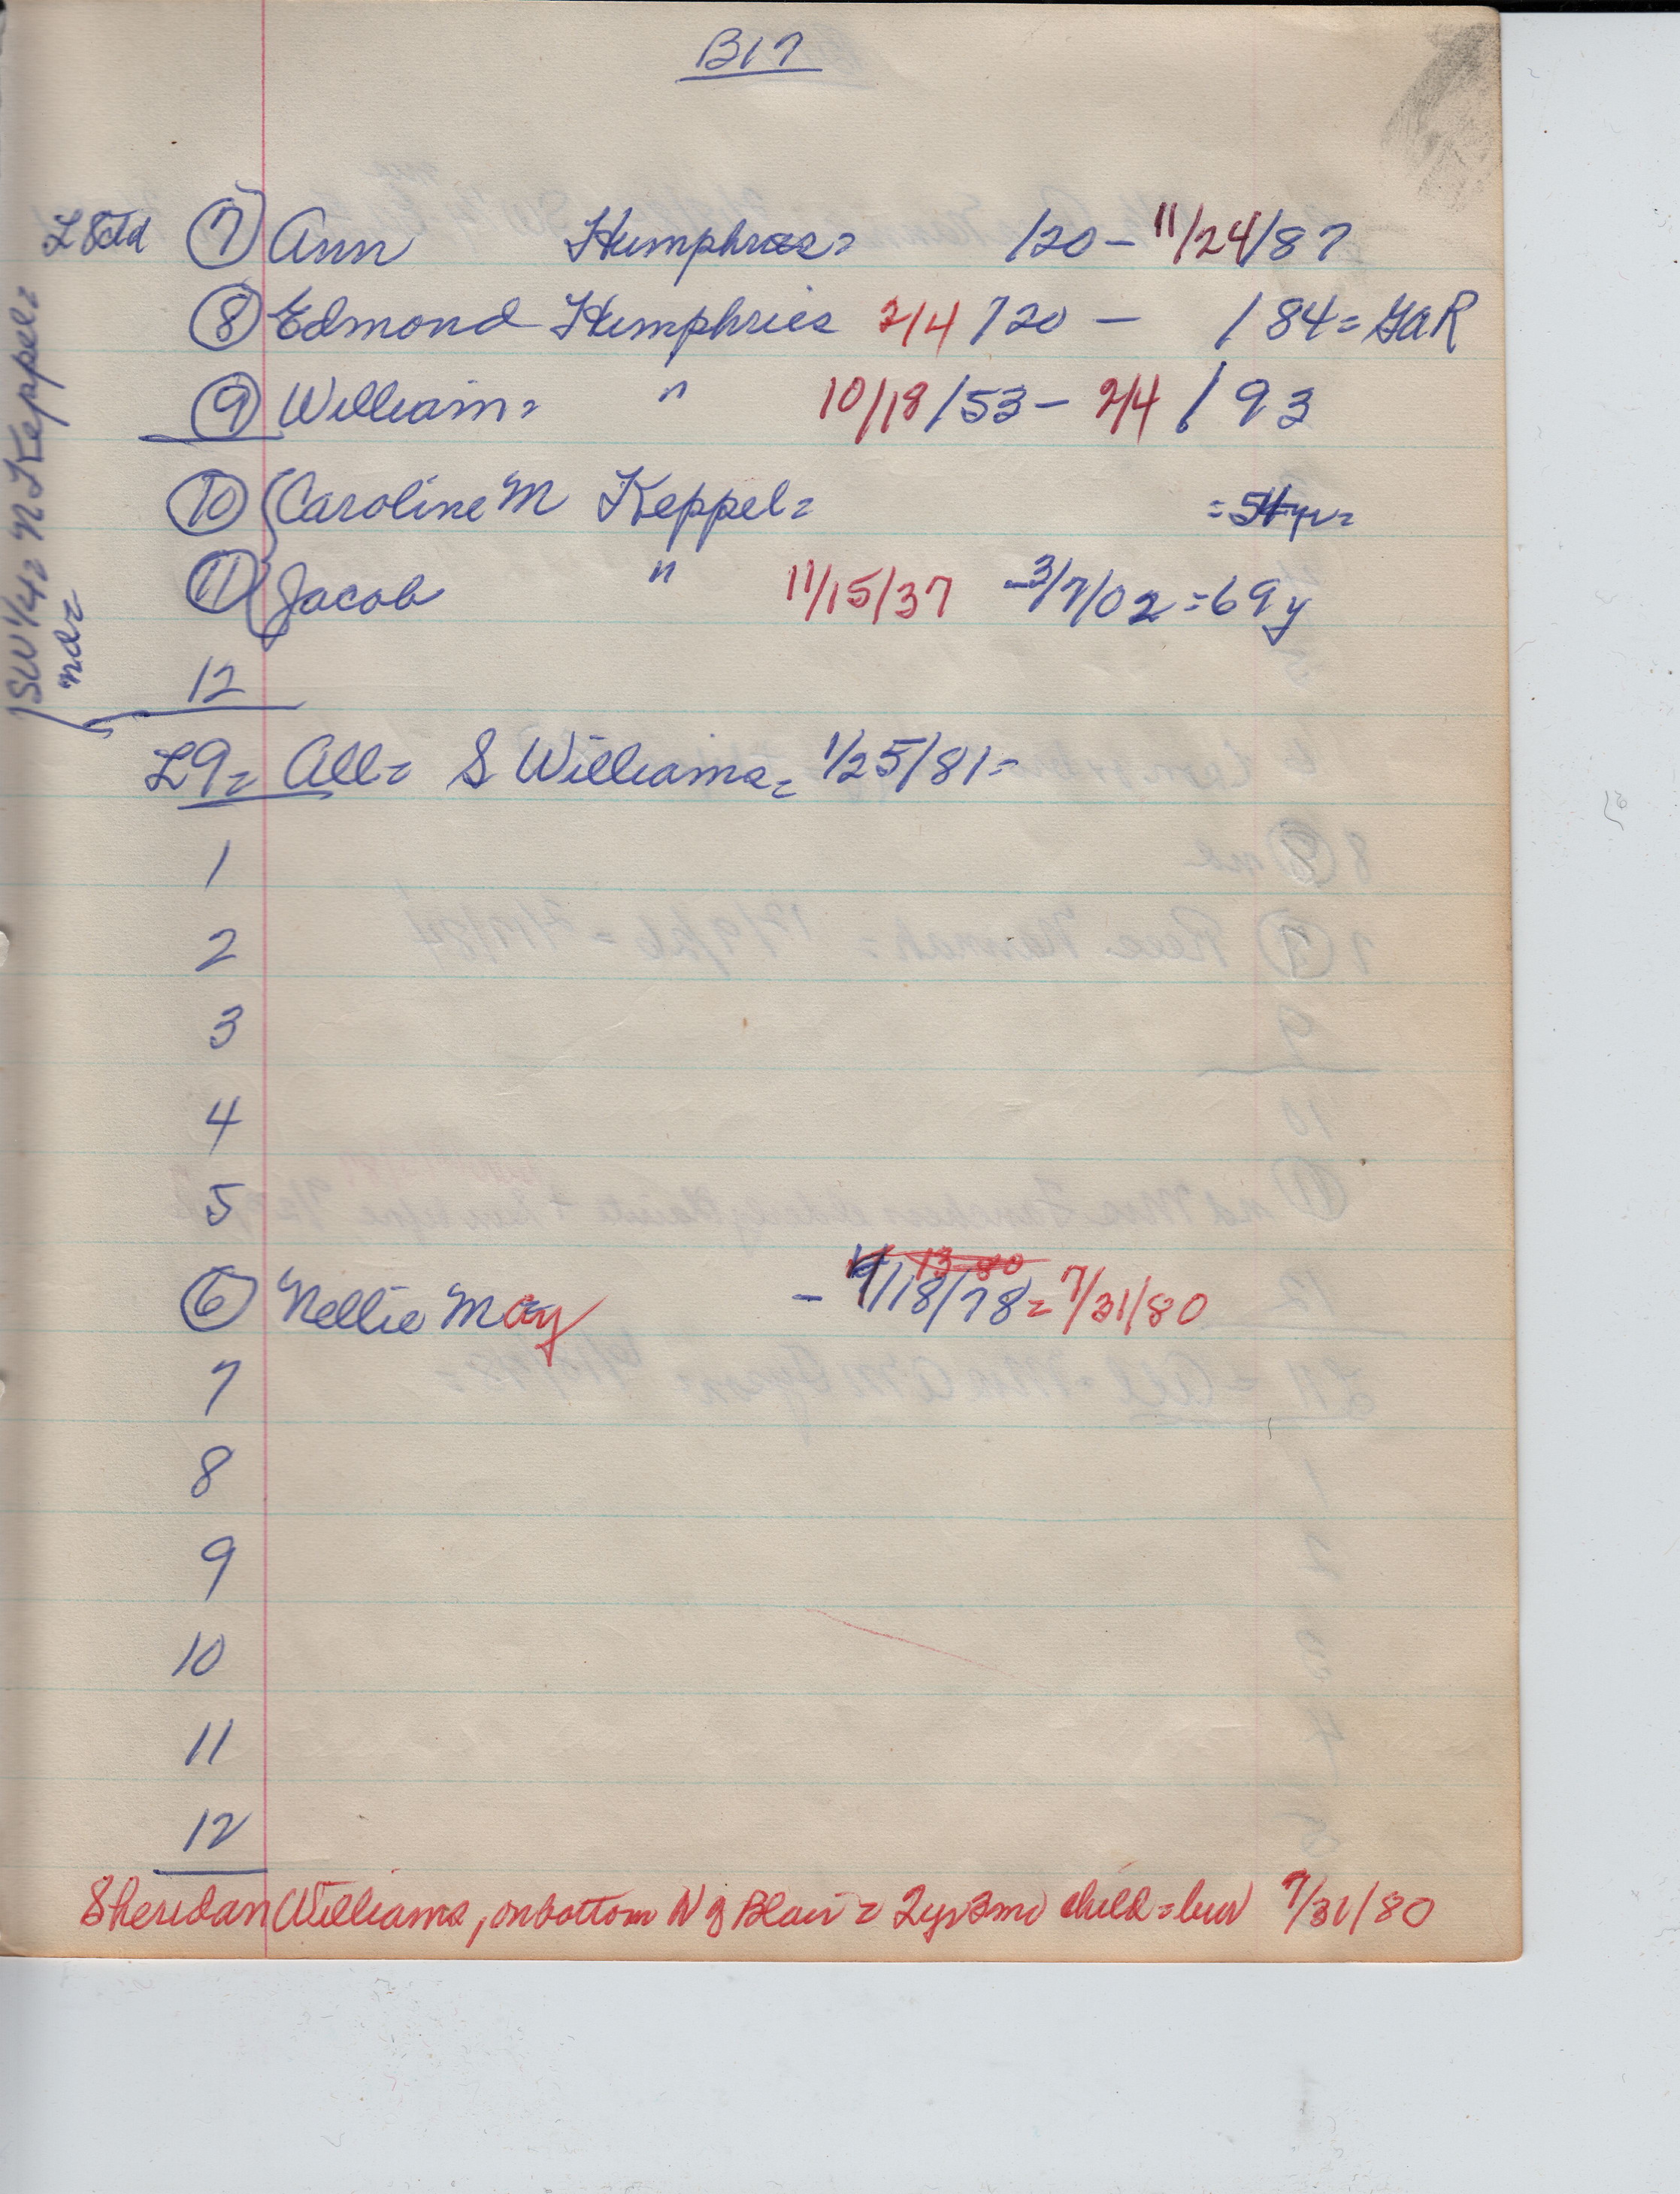 B17
L8Ctd 7 Ann Humphries= /20 - 11/24/87
8 Edmond Humphries 2/4 /20 - / 84= GAR
9 William= " 10/18/53 - 2/4 / 93
10 Caroline M Keppel= =54yr=
11 Jacob " 11/15/37 -3/7/02 =69y
12
SW 1/4= N Keppel=
nd=
L9= All= S Williams= 1/25/81=
1
2
3
4
5
13 80
6 Nellie May - 9/18/78= 7/31/80
7
8
9
10
11
12
Sheridan Williams, on bottom N g Blair = 2yr3mo child=bur 7/31/80